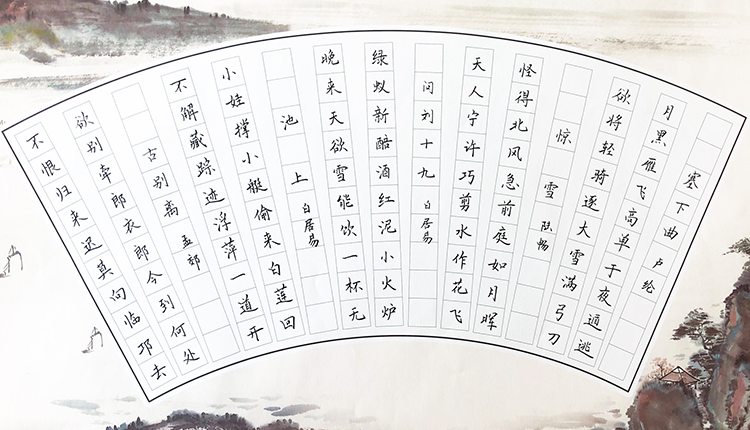 塞下曲 卢纶
月黑雁飞高单于夜遁逃
欲将轻骑逐大雪满弓刀
惊雪 陆畅
怪得北风急前庭如月晖
天人宁许巧剪水作花飞
问刘十九 白居易
绿蚁新醅酒红泥小火炉
晚来天欲雪能饮一杯无
池上 白居易
小娃撑小艇偷来白莲回
不解藏踪迹浮萍一道开
古别离 孟郊
欲别牵郎衣郎今到何处
不恨归来迟莫向临邛去